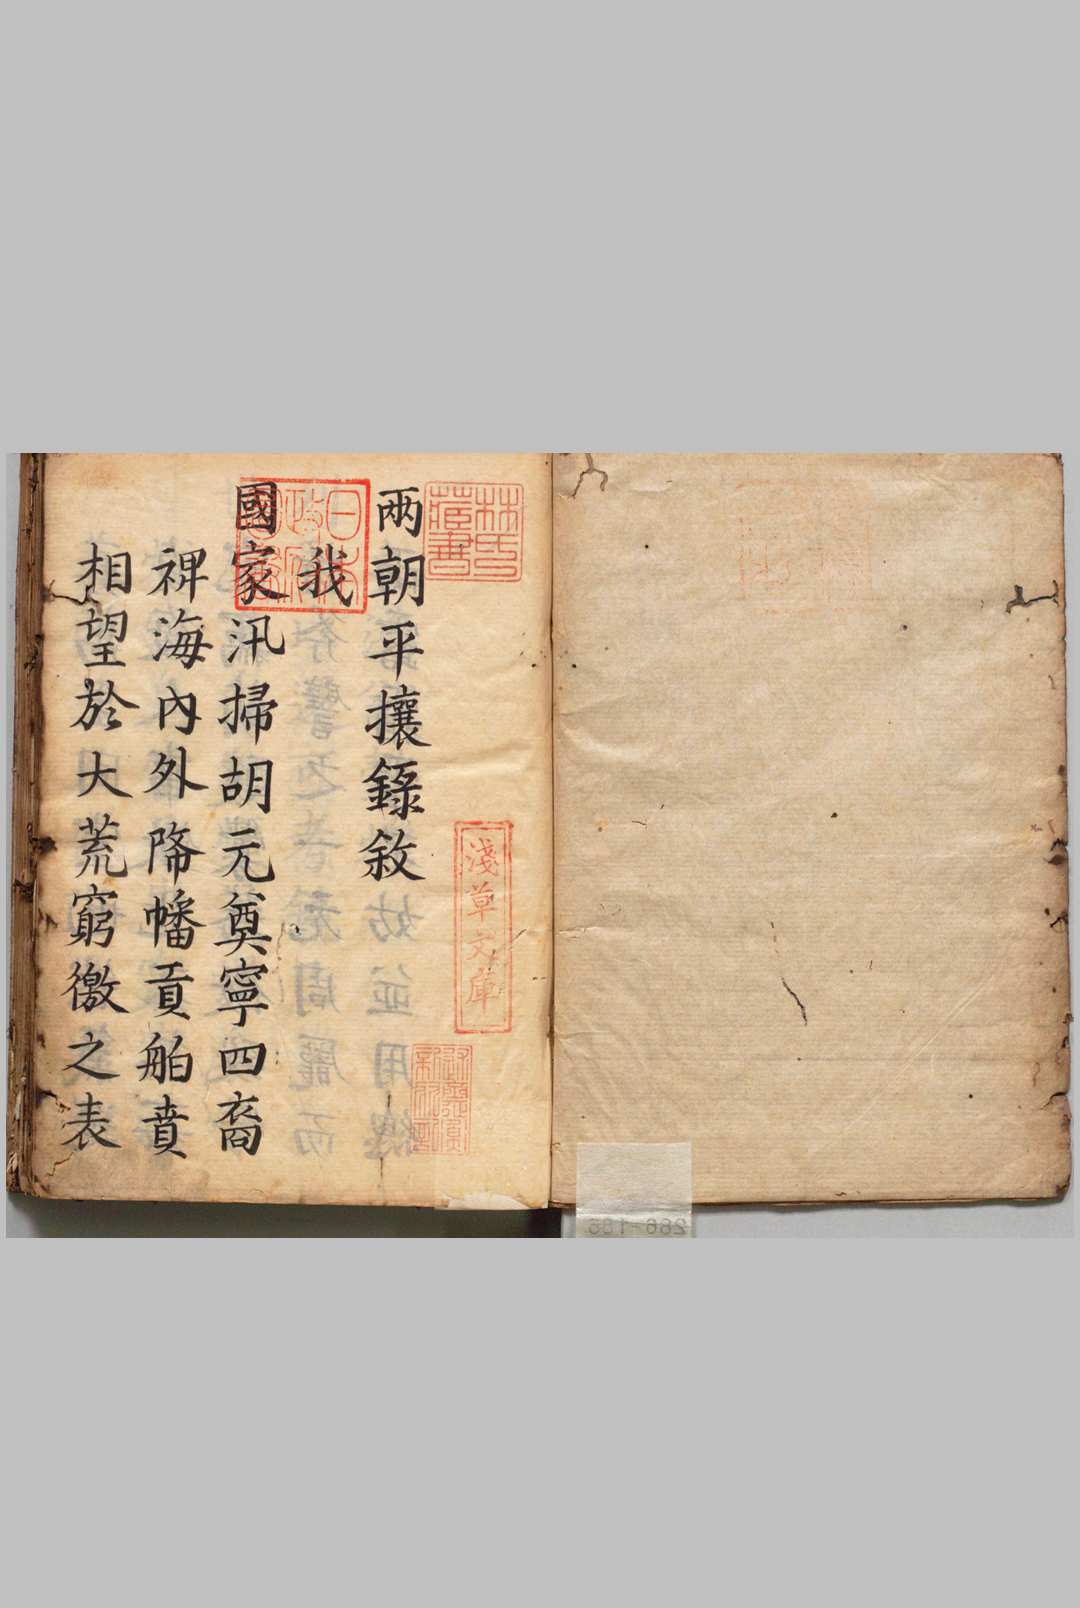 兩朝平攘錄敘
我
國家汛掃胡元奠寧四裔
裨海內外降幡貢舶賁
相望於大荒窮徼之表
林氏
藏書
日本
政府
圖書
淺草文庫
266-186